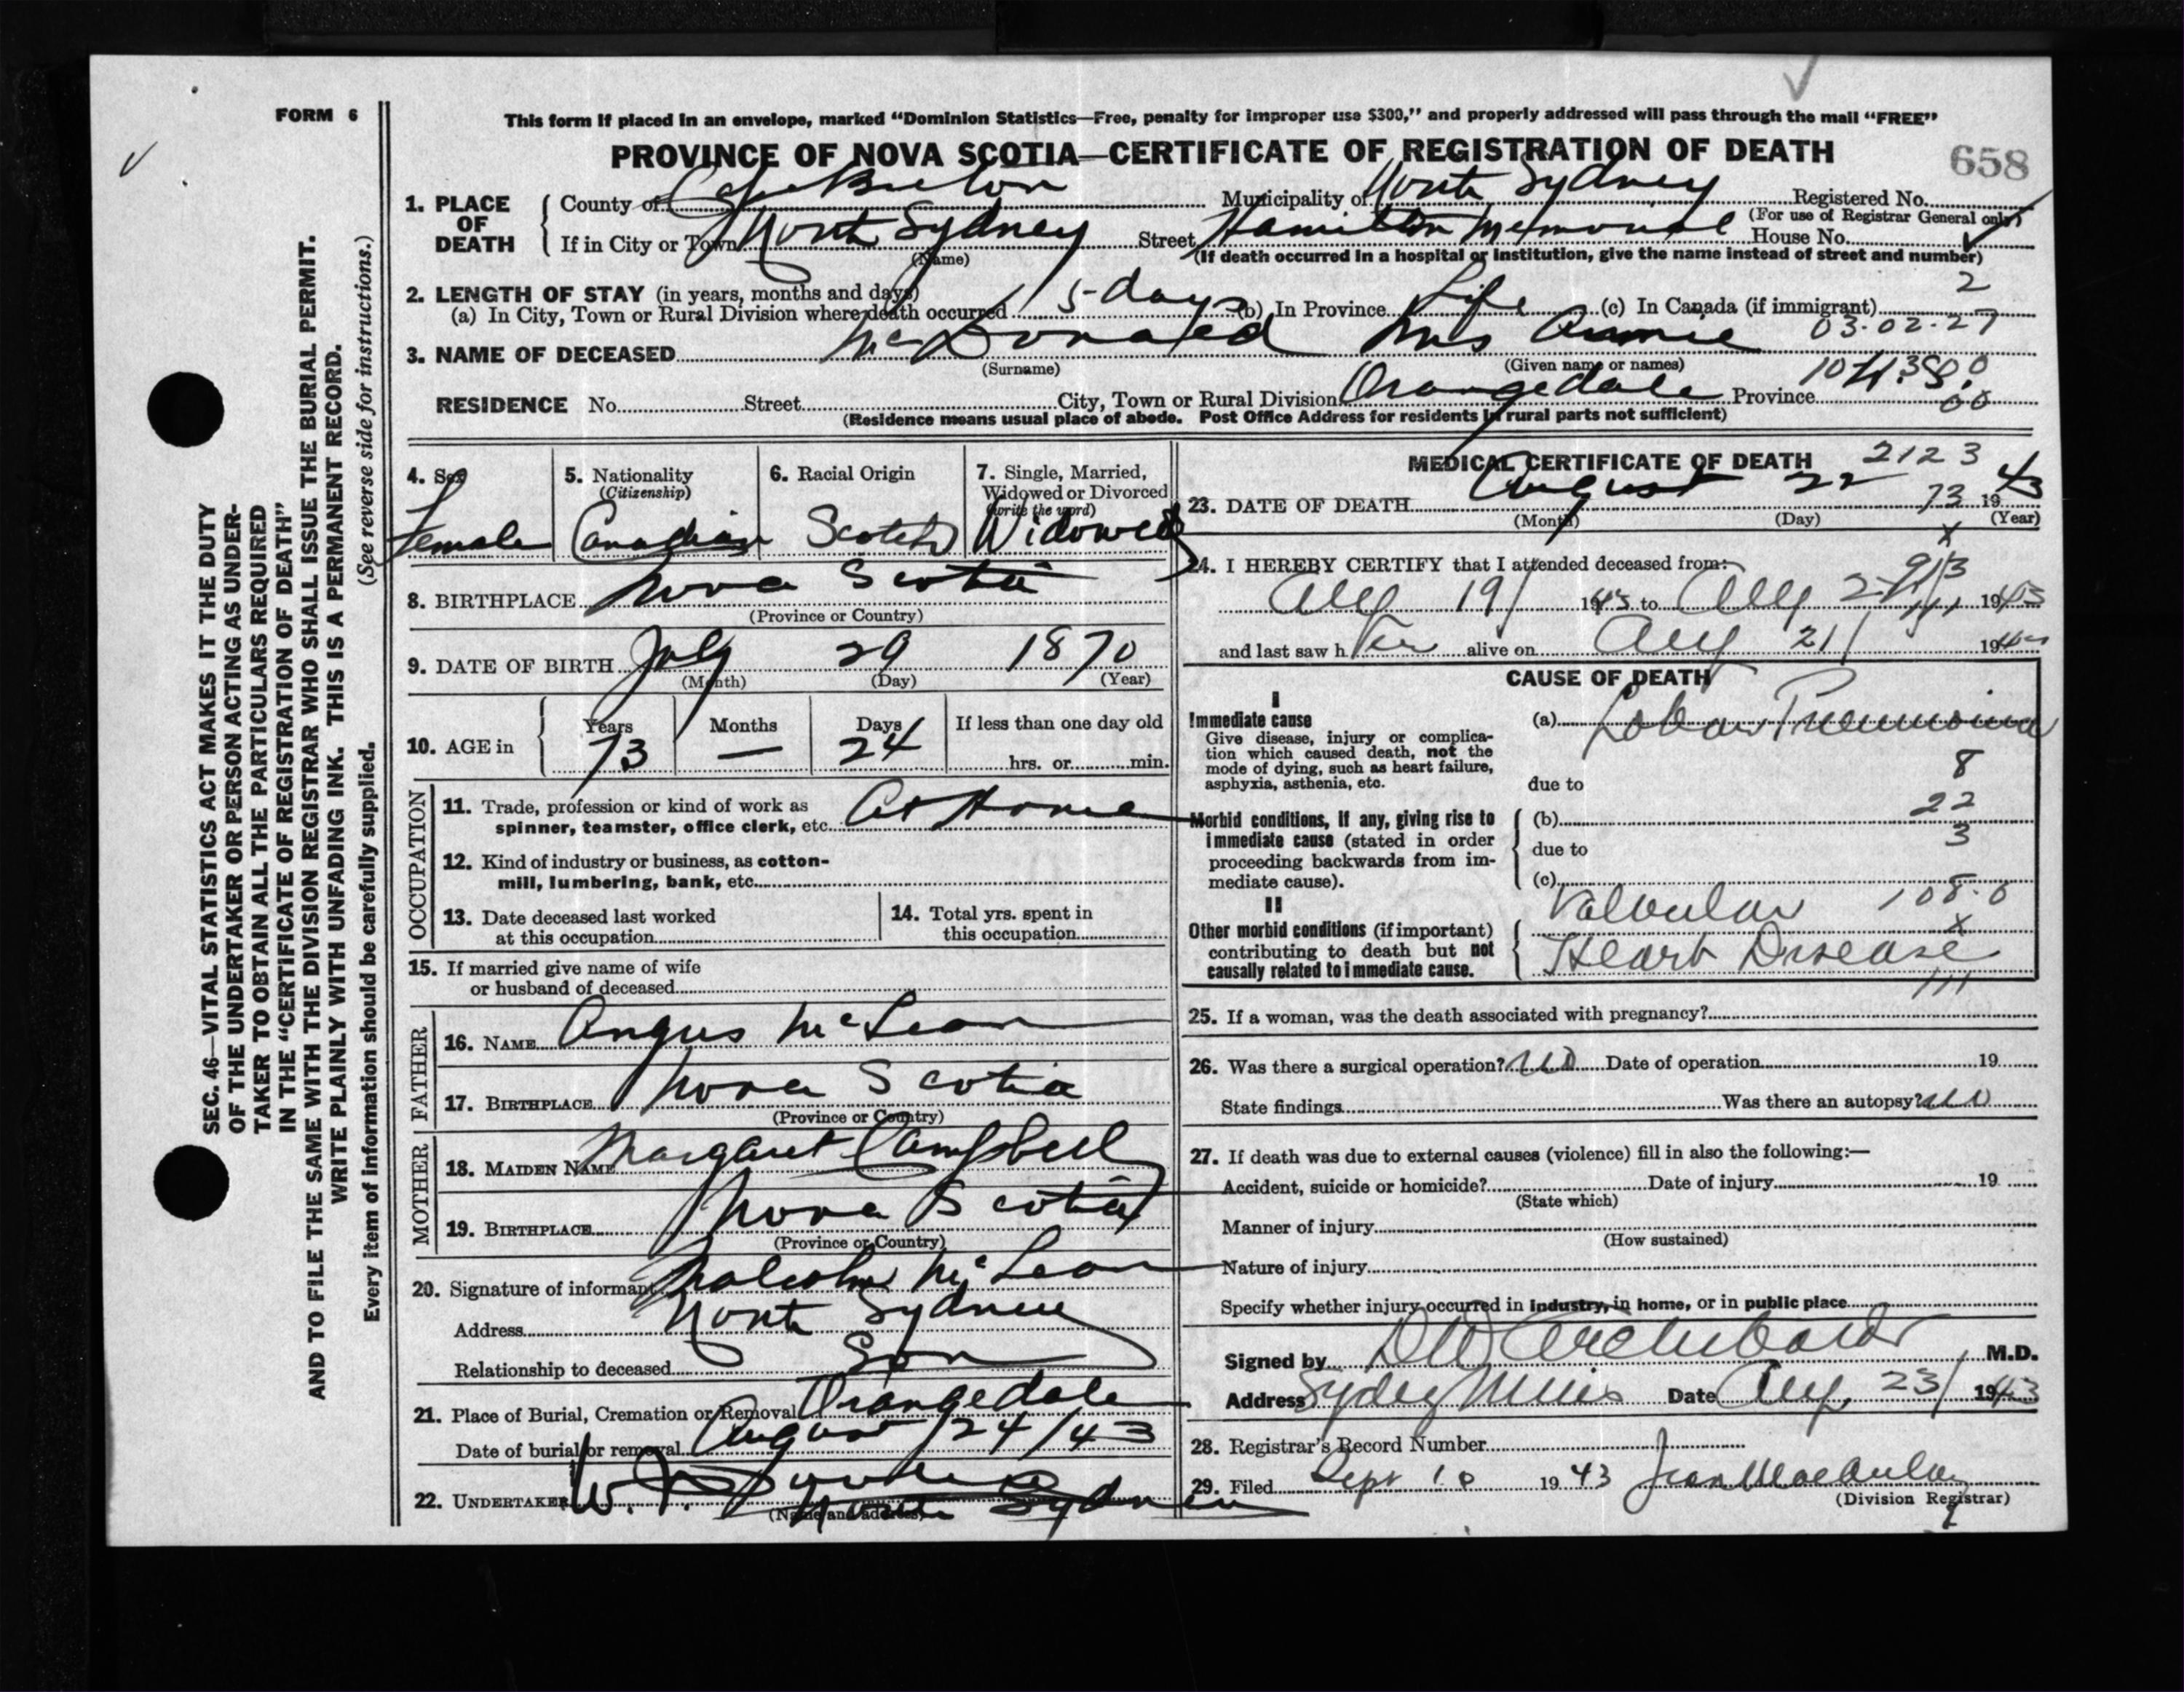 FORM 6
This form if placed in an envelope, marked "Dominion Statistics—Free, penalty for improper use $300," and properly addressed will pass through the mail "FREE"
PROVINCE OF NOVA SCOTIA—CERTIFICATE OF REGISTRATION OF DEATH
658
SEC. 46—VITAL STATISTICS ACT MAKES IT THE DUTY
OF THE UNDERTAKER OR PERSON ACTING AS UNDER-
TAKER TO OBTAIN ALL THE PARTICULARS REQUIRED
IN THE "CERTIFICATE OF REGISTRATION OF DEATH"
AND TO FILE THE SAME WITH THE DIVISION REGISTRAR WHO SHALL ISSUE THE BURIAL PERMIT.
WRITE PLAINLY WITH UNFADING INK. THIS IS A PERMANENT RECORD.
Every item of information should be carefully supplied. (See reverse side for instructions.)
1. PLACE OF DEATH
County of Cape Breton Municipality of North Sydney Registered No.
(For use of Registrar General only)
If in City or Town North Sydney Street Hamilton Memorial House No.
(Name) (If death occurred in a hospital or institution, give the name instead of street and number)
2. LENGTH OF STAY (in years, months and days) 2
(a) In City, Town or Rural Division where death occurred 5 days (b) In Province Life (c) In Canada (if immigrant)
3. NAME OF DECEASED McDonald Mrs Annie 03-02-27
(Surname) (Given name or names)
RESIDENCE No. Street City, Town or Rural Division Orangedale Province
(Residence means usual place of abode. Post Office Address for residents in rural parts not sufficient)
4. Sex
Female
5. Nationality
(Citizenship)
Canadian
6. Racial Origin
Scotch
7. Single, Married,
Widowed or Divorced
(write the word)
Widowed
8. BIRTHPLACE Nova Scotia
(Province or Country)
9. DATE OF BIRTH July 29 1870
(Month) (Day) (Year)
10. AGE in Years Months Days If less than one day old
73 — 24 hrs. or min.
OCCUPATION
11. Trade, profession or kind of work as
spinner, teamster, office clerk, etc. At Home
12. Kind of industry or business, as cotton-
mill, lumbering, bank, etc.
13. Date deceased last worked
at this occupation
14. Total yrs. spent in
this occupation
15. If married give name of wife
or husband of deceased
FATHER
16. NAME Angus McLean
17. BIRTHPLACE Nova Scotia
(Province or Country)
MOTHER
18. MAIDEN NAME Margaret Campbell
19. BIRTHPLACE Nova Scotia
(Province or Country)
20. Signature of informant Malcolm McLean
Address North Sydney
Relationship to deceased Son
21. Place of Burial, Cremation or Removal Orangedale
Date of burial or removal August /24/43
22. UNDERTAKER W. J.
(Name and address) North Sydney
MEDICAL CERTIFICATE OF DEATH 2123
23. DATE OF DEATH August 22 73 1943
(Month) (Day) (Year)
24. I HEREBY CERTIFY that I attended deceased from:
Aug 19/ 1943 to Aug 1943
and last saw her alive on Aug 21/ 19
CAUSE OF DEATH
I
Immediate cause
Give disease, injury or complica-
tion which caused death, not the
mode of dying, such as heart failure,
asphyxia, asthenia, etc.
(a) Lobar Pneumonia
8
due to
Morbid conditions, if any, giving rise to
immediate cause (stated in order
proceeding backwards from im-
mediate cause).
(b) 22
due to 3
(c)
II
Other morbid conditions (if important)
contributing to death but not
causally related to immediate cause.
Valvular 108.0
x
Heart Disease
111
25. If a woman, was the death associated with pregnancy?
26. Was there a surgical operation? no Date of operation 19
State findings Was there an autopsy? no
27. If death was due to external causes (violence) fill in also the following:—
Accident, suicide or homicide? Date of injury 19
(State which)
Manner of injury
(How sustained)
Nature of injury
Specify whether injury occurred in industry, in home, or in public place
Signed by DW Archibald M.D.
Address Sydney Mines Date Aug 23/ 1943
28. Registrar's Record Number
29. Filed Sept 10 1943 Jean MacAulay
(Division Registrar)